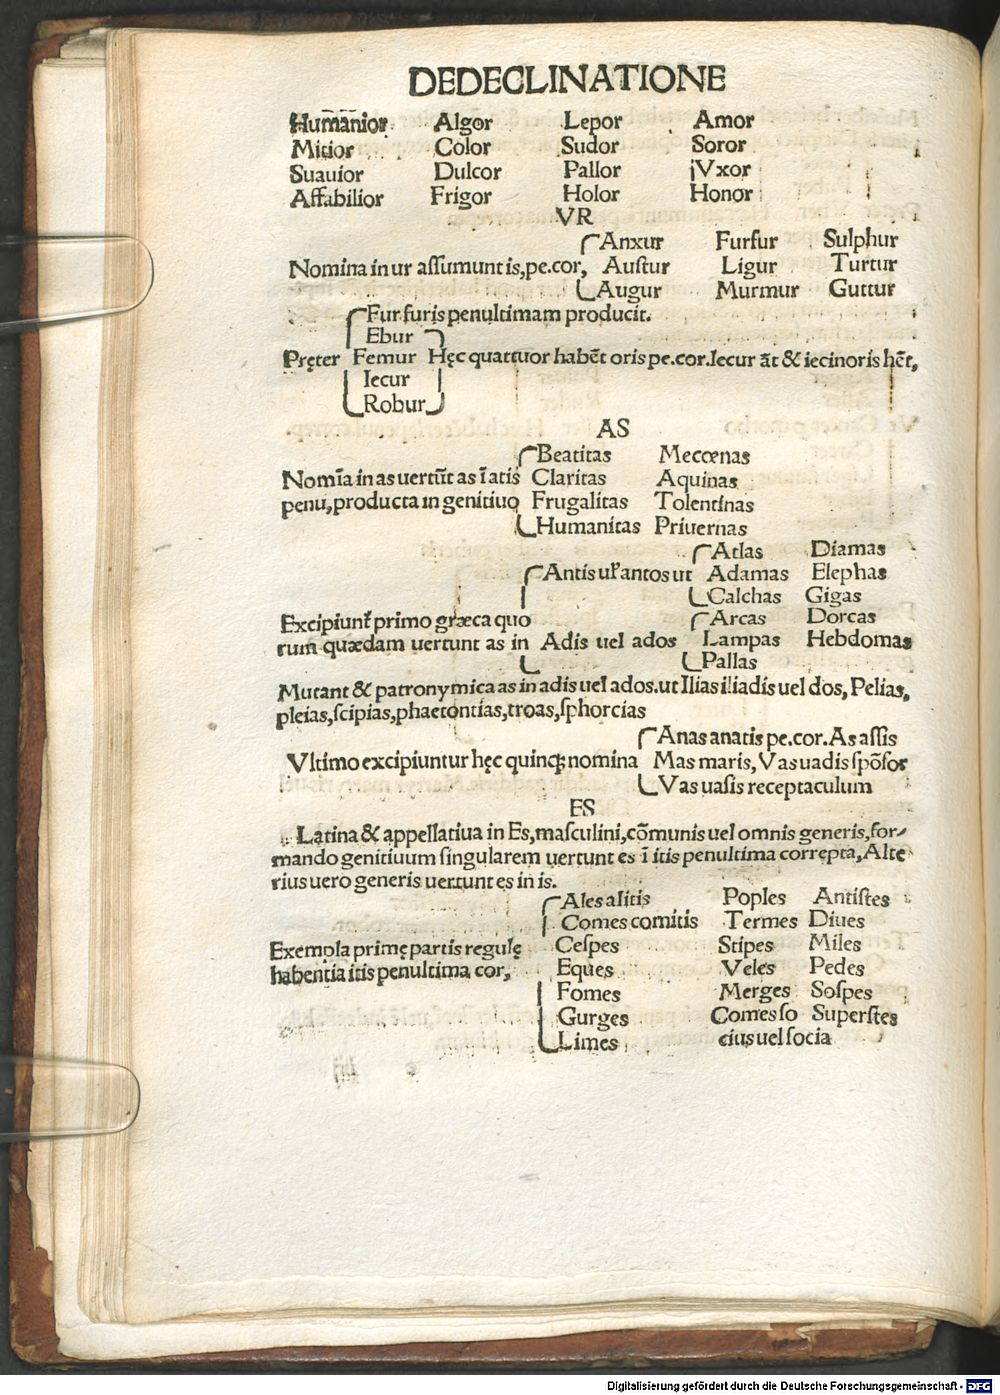 DEDECLINATIONE
Hum̄a̅nior Algor Lepor Amor
Mitior Color Sudor Soror
Suauior Dulcor Pallor Vxor
Affabilior Frigor Holor Honor
VR
Anxur Furfur Sulphur
Nomina in ur assumunt is, pe.cor, Austur Ligur Turtur
Augur Murmur Guttur
Fur furis penultimam producit.
Ebur
Pręter Femur Hęc quattuor habēt oris pe.cor. Iecur āt & iecinoris hēt,
Iecur
Robur
AS
Beatitas Mecœnas
Nomīa in as uertūt as ī atis Claritas Aquinas
penu, producta in genitiuo Frugalitas Tolentinas
Humanitas Priuernas
Atlas Diamas
Antis uľ antos ut Adamas Elephas
Calchas Gigas
Excipiunt̄ primo græca quo Arcas Dorcas
rum̄ quædam uertunt as in Adis uel ados Lampas Hebdomas
Pallas
Mutant & patronymica as in adis uel ados. ut Ilias iliadis uel dos, Pelias,
pleias, scipias, phaetontias, troas, sphorcias
Anas anatis pe.cor. As assis
Vltimo excipiuntur hęc quinqȝ nomina Mas maris, Vas uadis spōsor
Vas uasis receptaculum
ES
Latina & appellatiua in Es, masculini, cōmunis uel omnis generis, for-
mando genitiuum singularem uertunt es ī itis penultima correpta, Alte
rius uero generis uertunt es in is.
Ales alitis Poples Antistes
Comes comitis Termes Diues
Exempla primę partis regulę Cespes Stipes Miles
habentia itis penultima cor, Eques Veles Pedes
Fomes Merges Sospes
Gurges Comes so Superstes
Limes cius uel socia
Digitalisierung gefördert durch die Deutsche Forschungsgemeinschaft - DFG